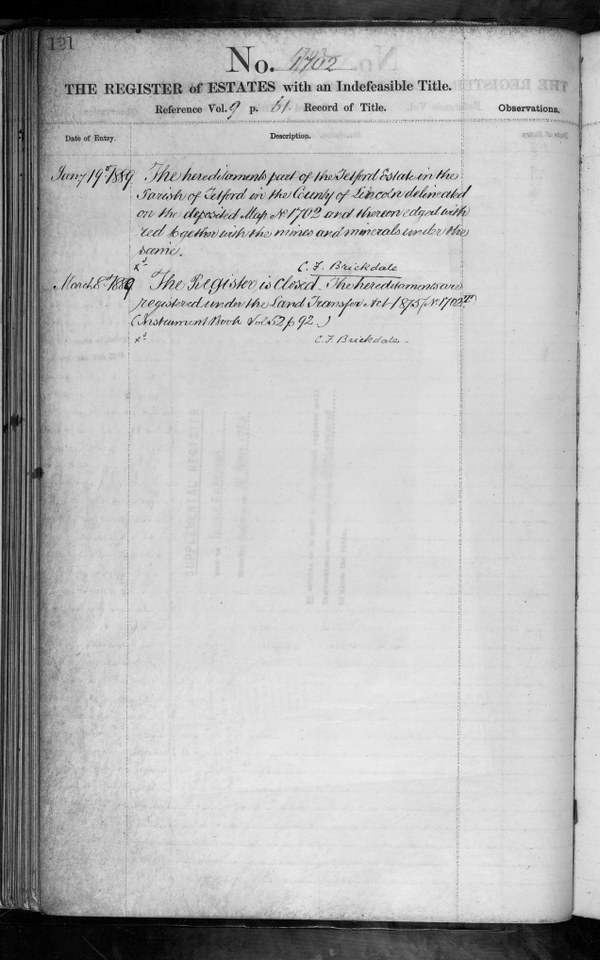 121
No. 1702
THE REGISTER of ESTATES with an Indefeasible Title.
Reference Vol. 9 p. 61 Record of Title.
Observations.
Date of Entry.
Description.
Jany 19th 1889 The hereditaments part of the Tetford Estate in the
Parish of Tetford in the County of Lincoln delineated
on the deposited Map No 1702 and thereon edged with
red together with the mines and minerals under the
same.
xd
C. F. Brickdale
March 8th 1889 The Register is closed. The hereditaments are
registered under the Land Transfer Act 1875 (No 1702
(Instrument Book Vol 52 p 92.)
xd
C. F. Brickdale